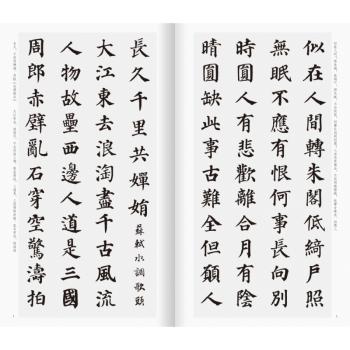 似在人間轉朱閣低綺戶照
無眠不應有恨何事長向別
時圓人有悲歡離合月有陰
晴圓缺此事古難全但願人
長久千里共嬋娟 蘇軾水調歌頭
大江東去浪淘盡千古風流
人物故壘西邊人道是三國
周郎赤壁亂石穿空驚濤拍